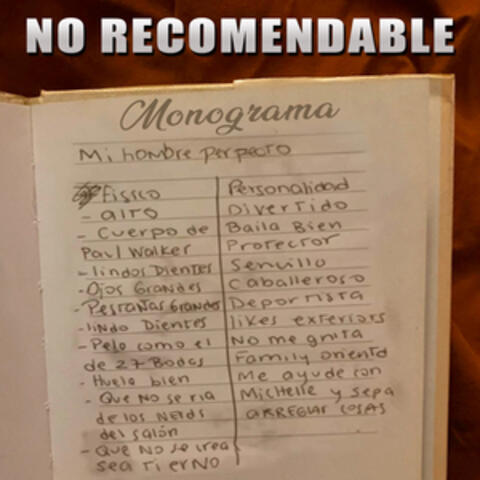 NO RECOMENDABLE
Monograma
Mi hombre perpecto
Fissco
- alto
- Cuerpo de
Paul Walker
- lindos Dientes
- Ojos Grandes
- Pestañas Grandes
- lindo Dientes
- Pelo como el
de 27 Bodas
- Huela bien
- Que No se ria
de los Nerds
del salón
- Que No se crea
sea tierno
Personalidad
Divertido
Baila Bien
Protector
Sencillo
Caballeroso
Deportista
likes exteriors
No me grita
Family oriento
Me ayude con
Michelle y sepa
arreglar cosas